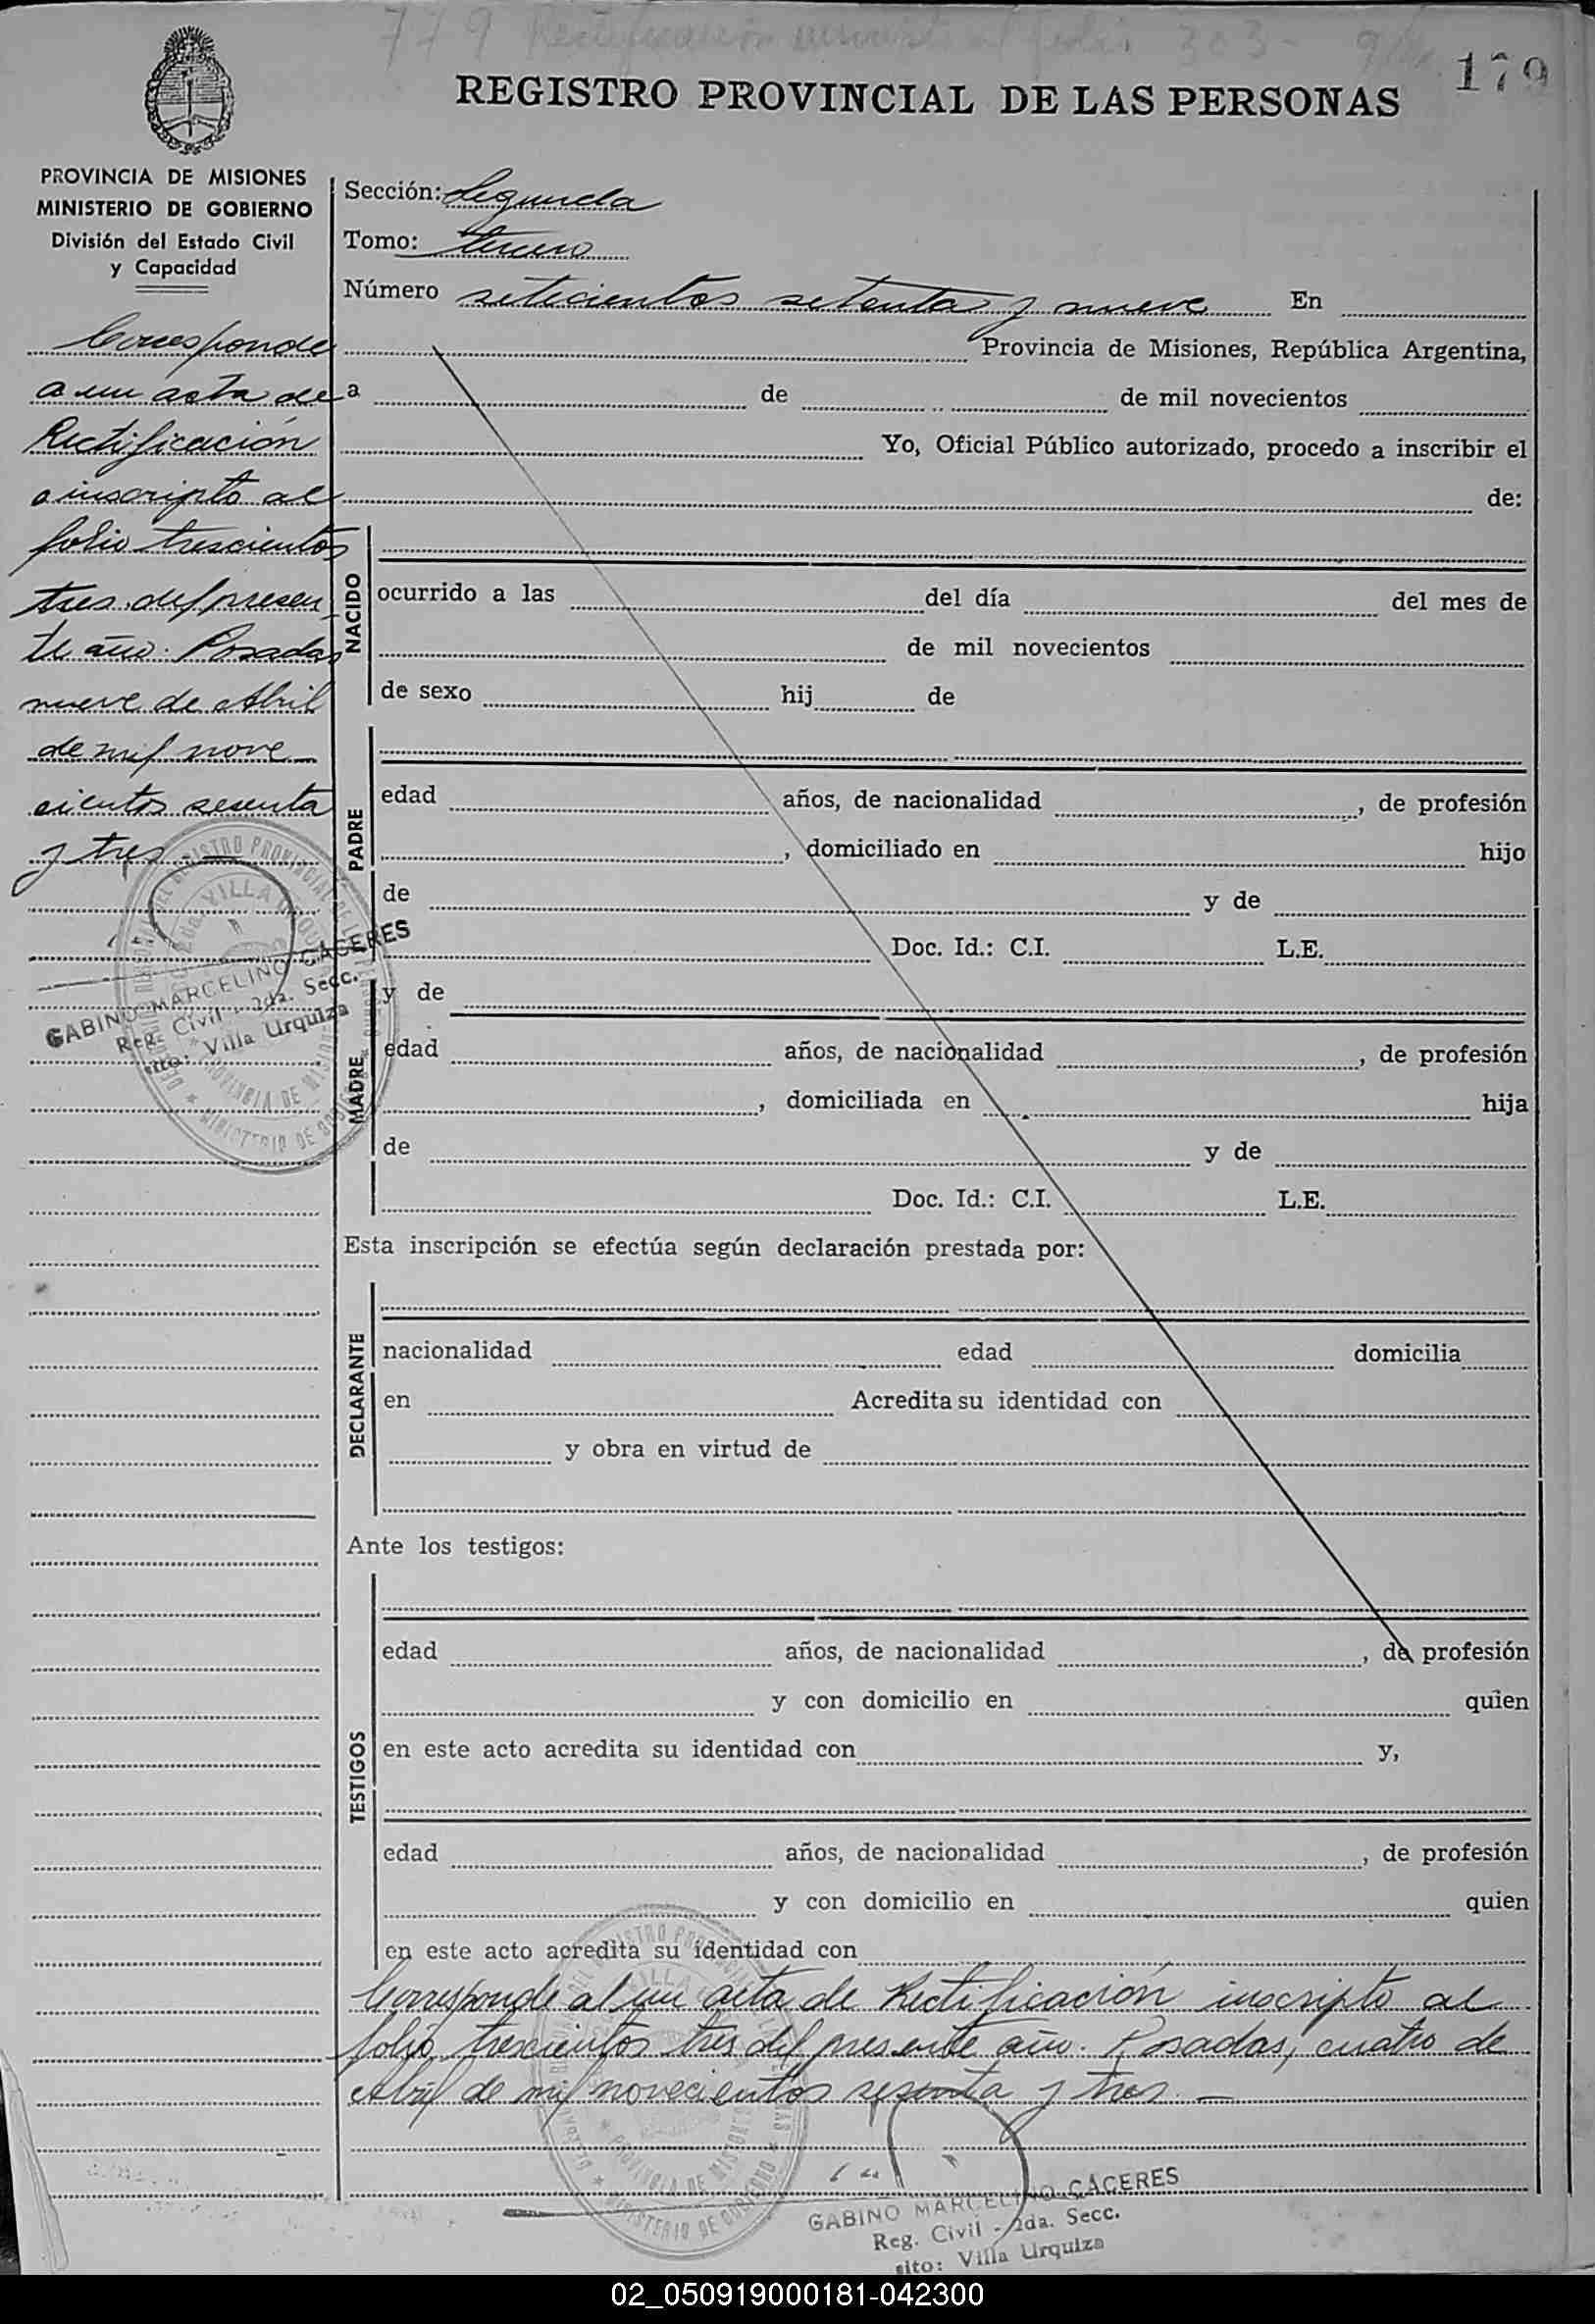 779 Rectificación inscripto al folio 303 -
179
REGISTRO PROVINCIAL DE LAS PERSONAS
PROVINCIA DE MISIONES
MINISTERIO DE GOBIERNO
División del Estado Civil
y Capacidad
Corresponde
a un acta de
Rectificación
inscripto al
folio trescientos
tres del presen
te año. Posadas
nueve de Abril
de mil nove
cientos sesenta
y tres.
GABINO MARCELINO CACERES
Reg. Civil - 2da. Secc.
sito: Villa Urquiza
Sección: Segunda
Tomo: tercero
Número setecientos setenta y nueve En
Provincia de Misiones, República Argentina,
a de de mil novecientos
Yo, Oficial Público autorizado, procedo a inscribir el
de:
NACIDO
ocurrido a las del día del mes de
de mil novecientos
de sexo hij de
PADRE
edad años, de nacionalidad , de profesión
, domiciliado en hijo
de y de
Doc. Id.: C.I. L.E.
MADRE
y de
edad años, de nacionalidad , de profesión
, domiciliada en hija
de y de
Doc. Id.: C.I. L.E.
Esta inscripción se efectúa según declaración prestada por:
DECLARANTE
nacionalidad edad domicilia
en Acredita su identidad con
y obra en virtud de
Ante los testigos:
TESTIGOS
edad años, de nacionalidad , de profesión
y con domicilio en quien
en este acto acredita su identidad con y,
edad años, de nacionalidad , de profesión
y con domicilio en quien
en este acto acredita su identidad con
Corresponde al un acta de Rectificación inscripto al
folio trescientos tres del presente año. Posadas, cuatro de
Abril de mil novecientos sesenta y tres. —
GABINO MARCELINO CACERES
Reg. Civil - 2da. Secc.
sito: Villa Urquiza
02_050919000181-042300